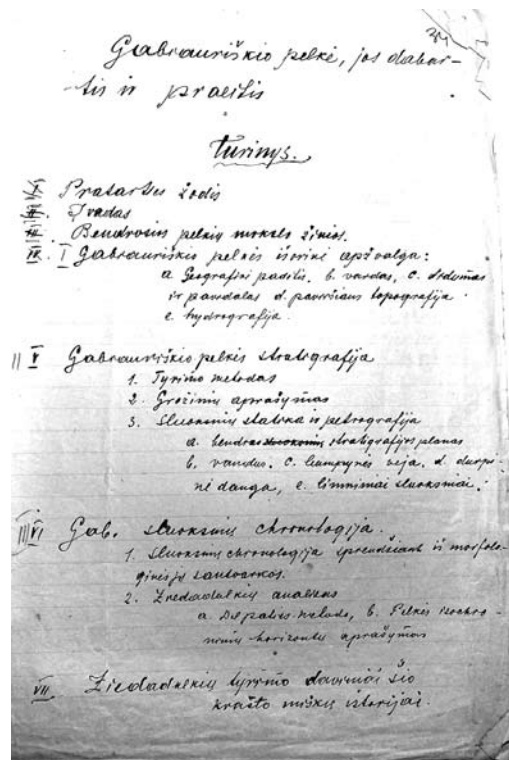 34
Gabrauriškio pelkė, jos dabar-
-tis ir praeitis
Turinys.
Pratartės žodis
Įvadas
Bendrosios pelkių mokslo žinios.
IV. I Gabrauriškio pelkės išorinė apžvalga:
a Geografinė padėtis. b. vardas, c. didumas
ir pavidalas d. paviršiaus topografija
e. hydrografija.
II V Gabrauriškio pelkės stratigrafija
1. Tyrimo metodas
2. Gręžinių aprašymas
3. Sluoksnių statika ir petrografija
a. bendras sluoksnių stratigrafijos planas
b. vanduo. c. kempynės veja. d. durpi-
nė danga, e. limnimai sluoksniai.
III VI Gab. sluoksnių chronologija.
1. Sluoksnių chronologija sprendžiant iš morfolo-
ginės jų santvarkos.
2. Žiedadulkių analizas
a. Dėl paties metodo, b. Pelkės izochro-
ninių horizontų aprašymas
VII Žiedadulkių tyrimo daviniai šio
krašto miškų istorijai.